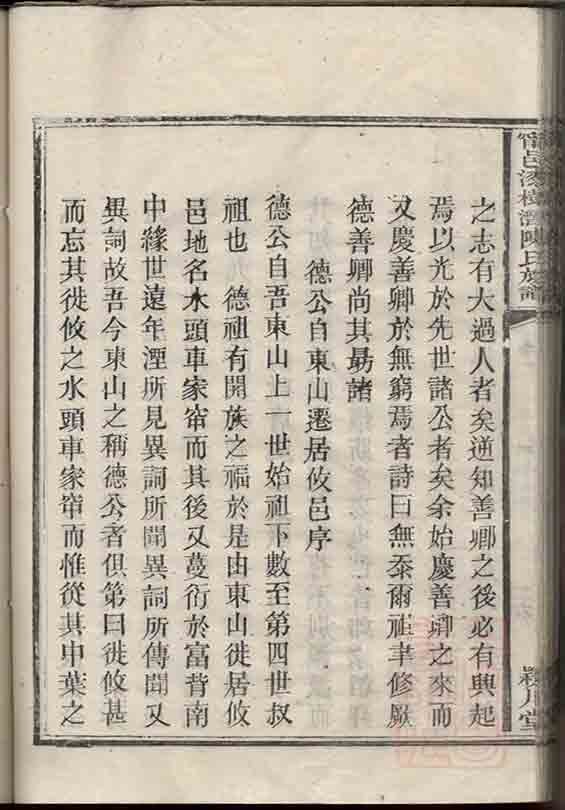 甯邑漆樹潭陳氏族譜
潁川堂
之志有大過人者矣逆知善卿之後必有興起
焉以光於先世諸公者矣余始慶善卿之來而
又慶善卿於無窮焉者詩曰無忝爾祖聿修厥
德善卿尚其勗諸
德公自東山遷居攸邑序
德公自吾東山上一世始祖下數至第四世叔
祖也 德祖有開族之福於是由東山徙居攸
邑地名水頭車家帘而其後又蔓衍於富背南
中緣世遠年湮所見異詞所聞異詞所傳聞又
異詞故吾今東山之稱德公者俱第曰徙攸甚
而忘其徙攸之水頭車家帘而惟從其中葉之